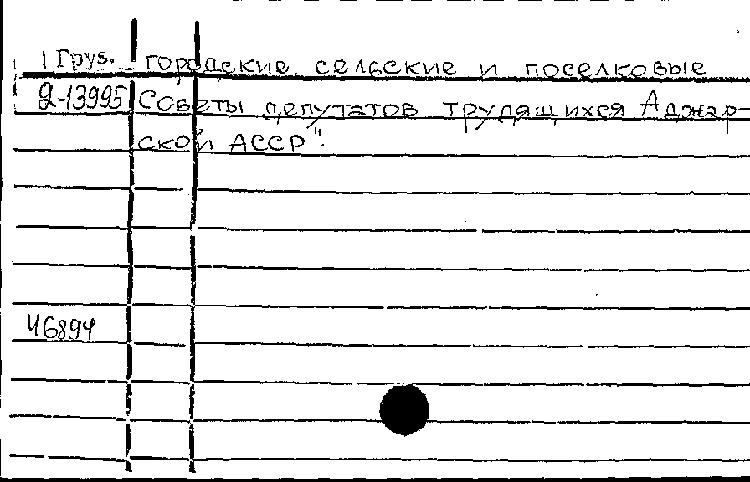 Груз. городские сельские и поселковые
2-13995 Советы депутатов трудящихся Аджар-
ской АССР".
46894